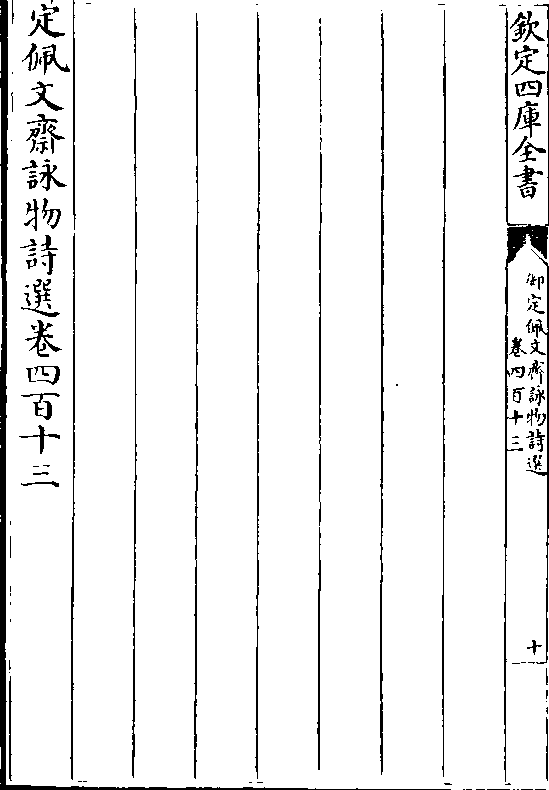 欽定四庫全書
御定佩文齋詠物詩選
卷四百十三
十
定佩文齋詠物詩選卷四百十三